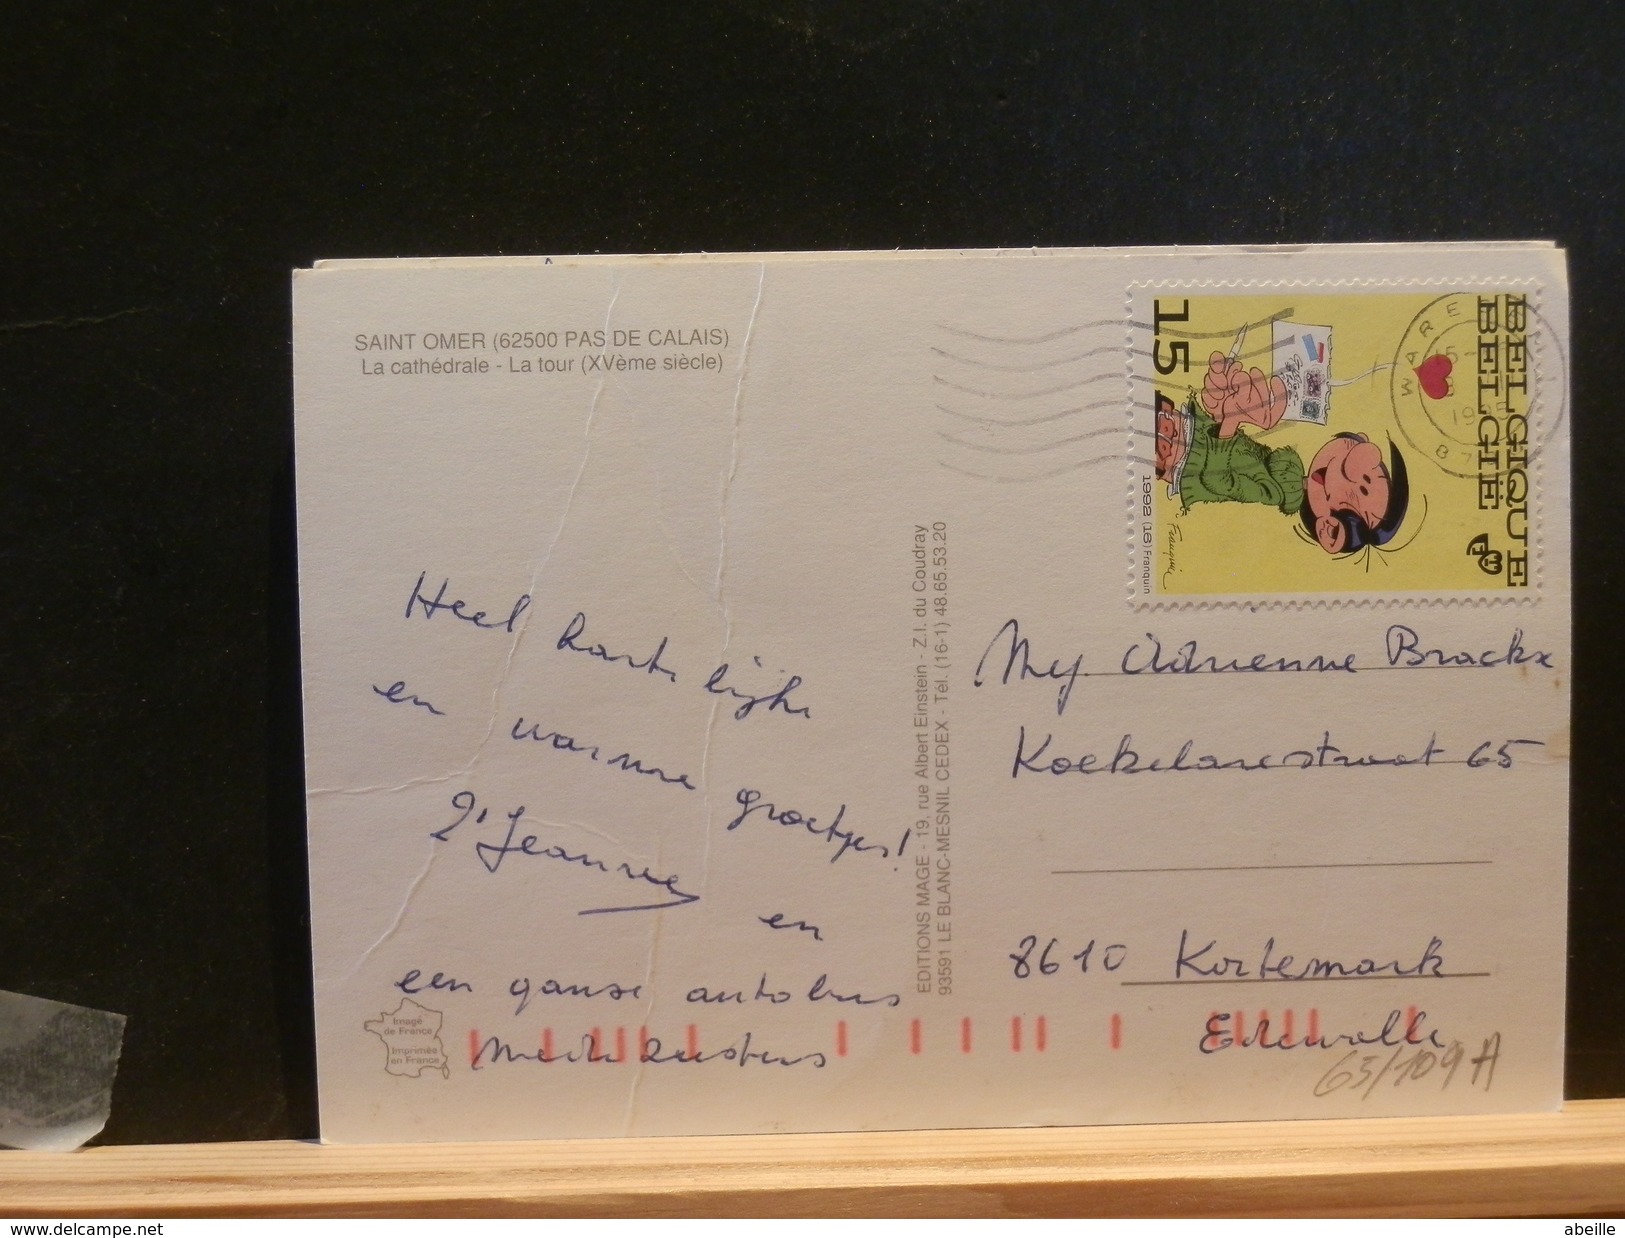 SAINT OMER (62500 PAS DE CALAIS)
La cathédrale - La tour (XVème siècle)
Heel hartelijke
en warme groetjes!
Jeanne
en
een ganse autobus
medezusters
Image
de France
Imprimée
en France
EDITIONS MAGE - 19, rue Albert Einstein - Z.I. du Coudray
93591 LE BLANC-MESNIL CEDEX - Tél. (16-1) 48.65.53.20
BELGIQUE
BELGIË
15
Franquin
1992 (16) Franquin
WARE
1995
Mej. Adrienne Brackx
Koekelarestraat 65
8610 Kortemark
Edewalle
65/109A
www.delcampe.net
abeille